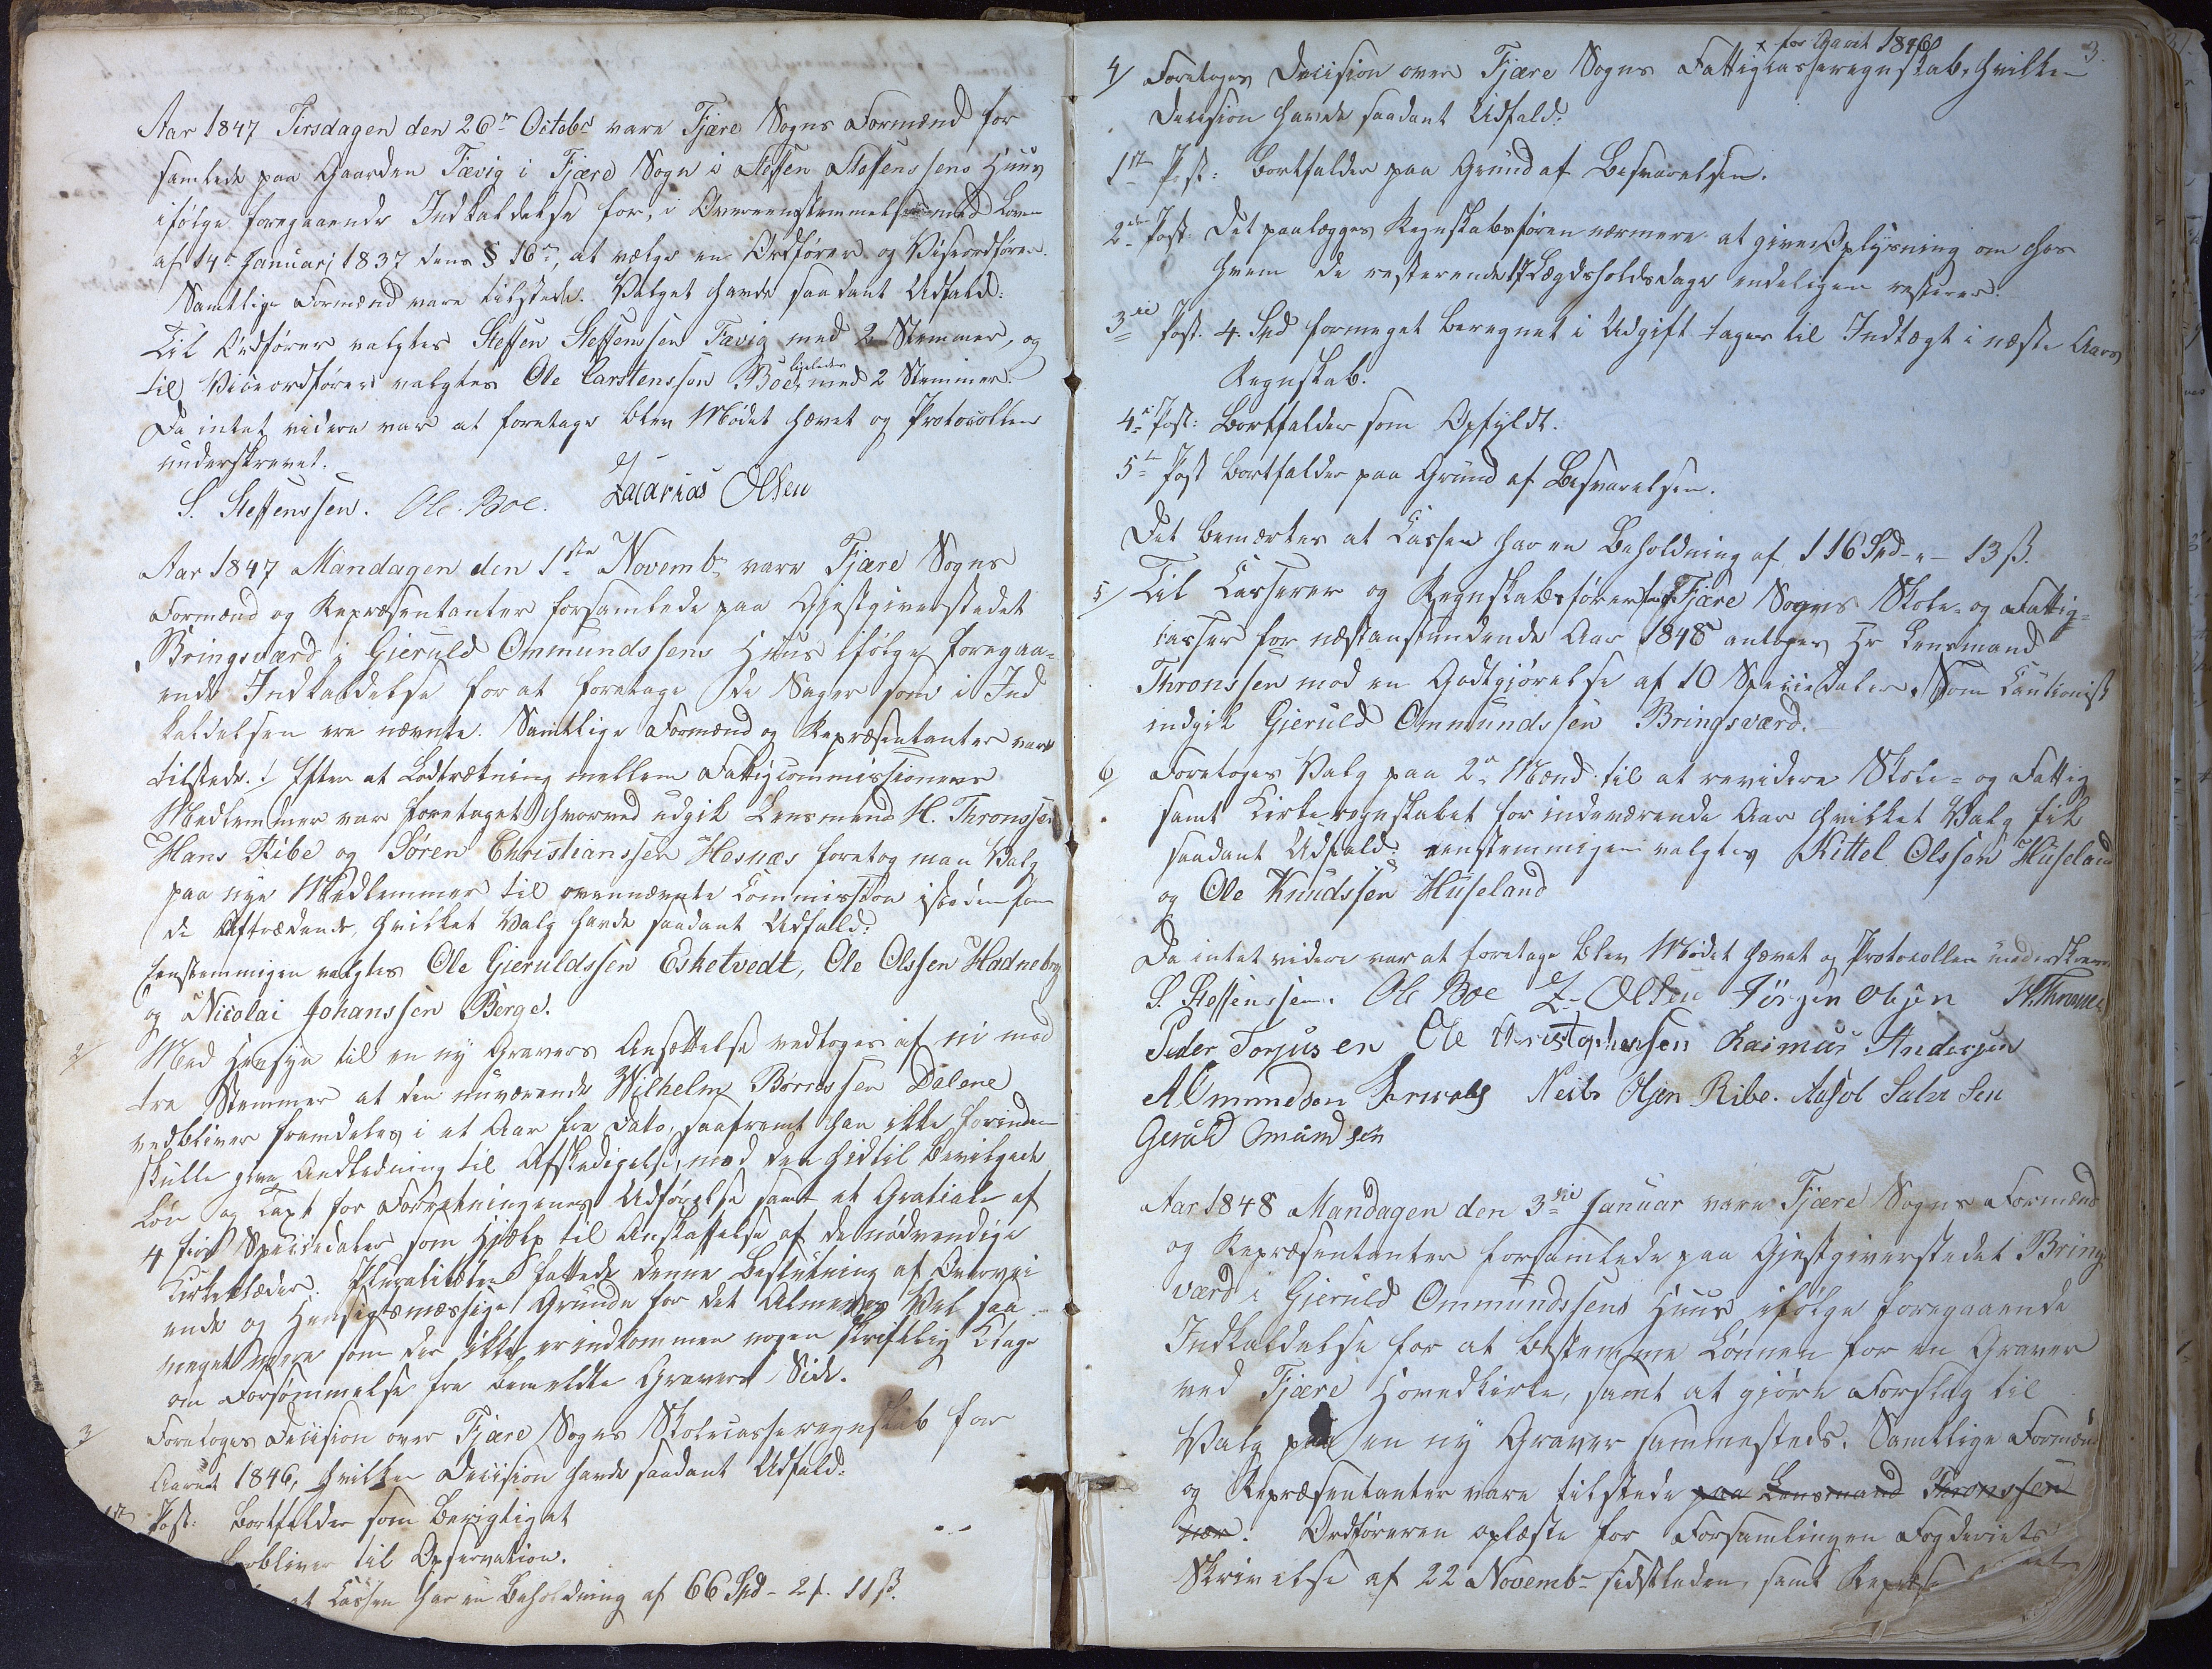 Aar 1847 Tirsdagen den 26de Octobr vare Fjære Sogns Formænd for
samlede paa Gaarden Fævig i Fjære Sogn i Steffen Steffenssens Huus
ifølge foregaaende Indkaldelse for, i Overeensstemmelse med Loven
af 14de Januarj 1837 dens § 16de, at vælge en Ordfører og Viseordfører.
Samtlige Formænd vare tilstede. Valget havde saadant Udfald:
Til Ordfører valgtes Steffen Steffenssen Fævig med 2 Stemmer, og
til Viceordfører valgtes Ole Carstenssen Boe, ligeledes med 2 Stemmer.
Da intet videre var at foretage blev Mødet hævet og Protocollen
underskrevet.
S. Steffenssen. Ole Boe. Zacarias Olsen
Aar 1847 Mandagen den 1ste Novembr vare Fjære Sogns
Formænd og Repræsentanter forsamlede paa Gjestgiverstedet
Bringsværd i Gieruld Ommundssens Huus ifølge foregaa-
ende Indkaldelse for at foretage de Sager som i Ind
kaldelsen ere nævnte. Samtlige Formænd og Repræsentanter vare
tilstede. 1/ Efter at Lodtrækning mellem Fattigcommissionens
Medlemmer var foretaget hvorved udgik Lensmand H. Thronssen
Hans Ribe og Søren Christianssen Hesnæs foretog man Valg
paa nye Medlemmer til ovennævnte Commission istedenfor
de Aftrædende, hvilket Valg havde saadant Udfald:
Eenstemmigen valgtes Ole Gieruldssen Esketvedt, Ole Olssen Hadneberg
og Nicolai Johanssen Berge.
2/ Med Hensyn til en ny Gravers Ansættelse vedtoges af ni mod
tre Stemmer at den nuværende Wilhelm Børressen Dalene
vedbliver fremdeles i et Aar fra Dato, saafremt han ikke forinden
skulle give Anledning til Afskedigelse, mod den hidtil bevilgede
Løn og Taxt for Forretningenes Udførelse samt et Gratiale af
4 fire Speciedaler som Hjælp til Anskaffelse af de nødvendige
Kirkeklæder. Pluraliteten fattede denne Beslutning af Overvei
ende og Hensigtsmæssige Grunde for det Almenes Vel saa
meget mere som der ikke er indkommen nogen skriftlig Klage
om Forsømmelse fra bemeldte Gravers Side.
3/ Foretoges Decision over Fjære Sogns Skolecasseregnskab for
Aaret 1846, hvilken Decision havde saadant Udfald:
1ste Post: Bortfalder som berigtiget
bliver til Observation.
at Cassen har en Beholdning af 66 Spd - 2 f. 11 ß.
3.
4/ Foretoges Decision over Fjære Sogns Fattigcasseregnskab, x for Aaret 1846 hvilken
Decision havde saadant Udfald:
1ste Post: Bortfalder paa Grund af Besvarelsen.
2den Post: Det paalægges Regnskabsføren nærmere at give Oplysning om hos
hvem de resterende 17 Lægdsholdsdage endeligen resterer.
3die Post. 4. Spd formeget beregnet i Udgift tages til Indtægt i næste Aars
Regnskab.
4de Post: Bortfalder som Opfyldt.
5te Post Bortfalder paa Grund af Besvarelsen.
Det bemærkes at Cassen har en Beholdning af 116 Spd - " - 13 ß.
5/ Til Casserer og Regnskabsfører for Fjære Sogns Skole- og Fattig-
casser for næstanstundende Aar 1848 antoges Hr Lensmand
Thronssen mod en Godtgjørelse af 10 Speciedaler. Som Cautionist
indgik Gieruld Ommundssen Bringsværd.
6/ Foretoges Valg paa 2de Mænd til at revidere Skole- og Fattig
samt Kirkeregnskabet for indeværende Aar hvilket Valg fik
saadant Udfald: eenstemmigen valgtes Kittel Olssen Huseland
og Ole Knudssen Huseland
Da intet videre var at foretage blev Mødet hævet og Protocollen underskrevn
S. Steffenssen. Ole Boe Z. Olsen Jørgen Olsen H. Thronsen
Peder Torjusen Ole Christophersen Rasmus Andersen
A Ommundsen Neils Olsen Ribe.
Gieruld Omundsen
Aar 1848 Mandagen den 3die Januar vare Fjære Sogns Formænd
og Repræsentanter forsamlede paa Gjestgiverstedet Brings
værd i Gieruld Ommundssens Huus ifølge foregaaende
Indkaldelse for at bestemme Lønnen for en Graver
ved Fjære Hovedkirke, samt at gjøre Forslag til
Valg paa en ny Graver sammesteds. Samtlige Formænd
og Repræsentanter vare tilstede paa Lensmand Thronssen
nær. Ordføreren oplæste for Forsamlingen Fogderiets
Skrivelse af 22 Novembr sidstleden, samt